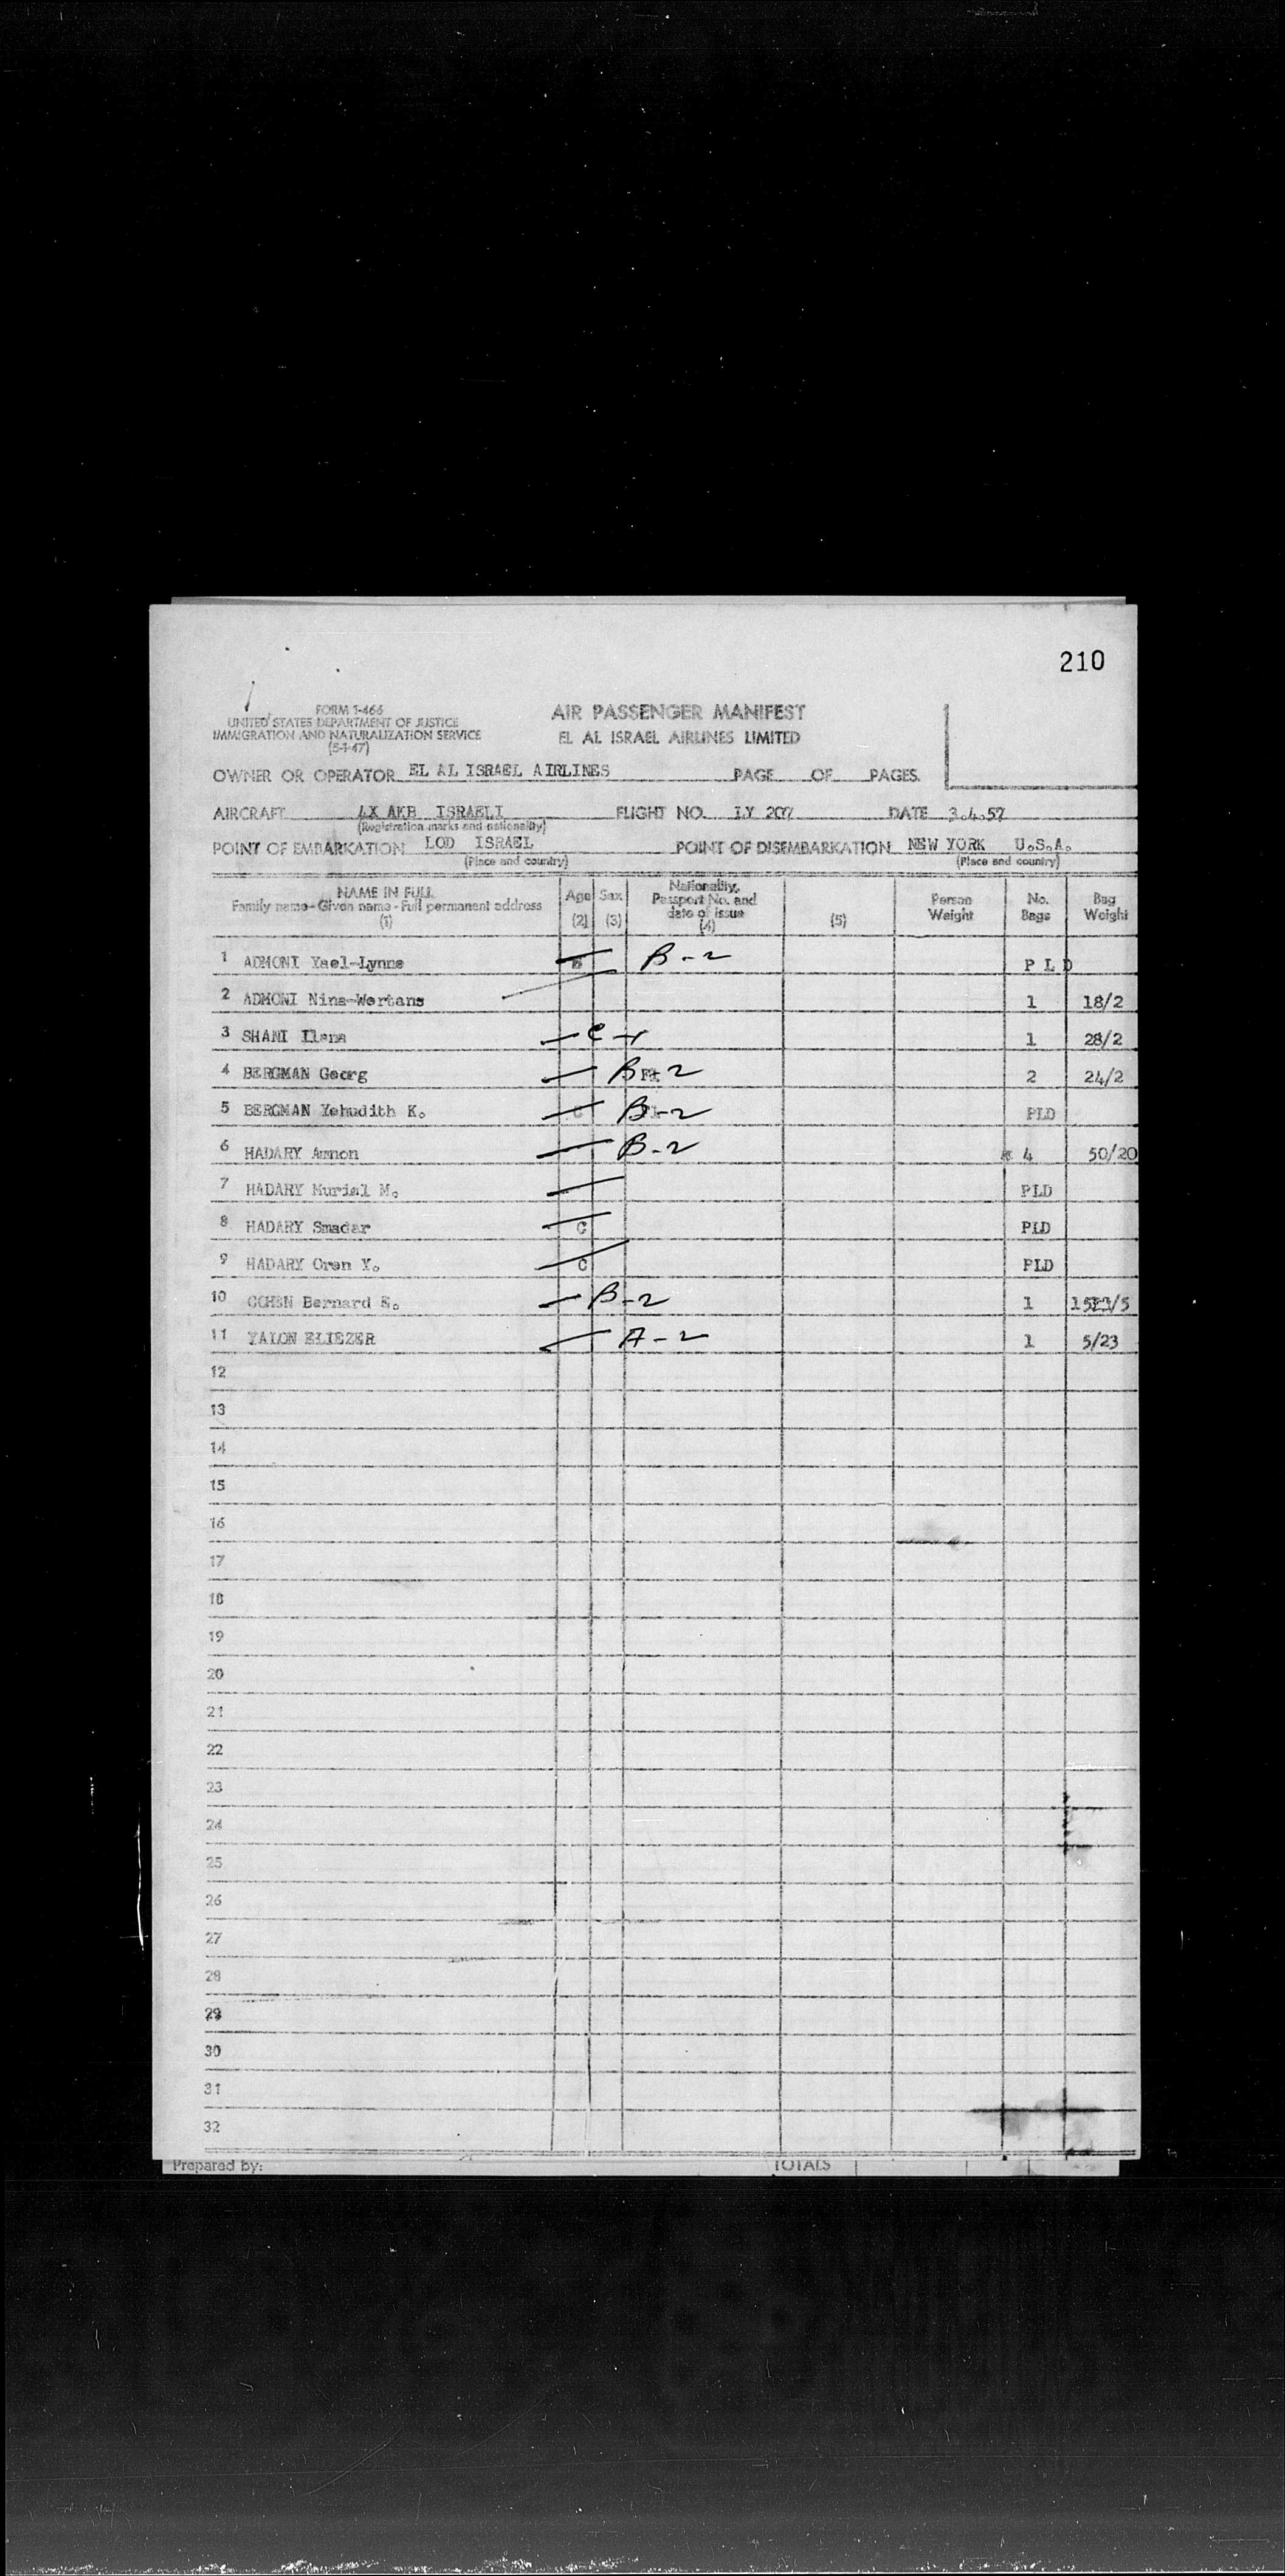 210
FORM I-466
UNITED STATES DEPARTMENT OF JUSTICE
IMMIGRATION AND NATURALIZATION SERVICE
(5-1-47)
AIR PASSENGER MANIFEST
EL AL ISRAEL AIRLINES LIMITED
OWNER OR OPERATOR EL AL ISRAEL AIRLINES PAGE OF PAGES.
AIRCRAFT 4X AKB ISRAELI FLIGHT NO. LY 207 DATE 3.4.57
(Registration marks and nationality)
POINT OF EMBARKATION LOD ISRAEL POINT OF DISEMBARKATION NEW YORK U.S.A.
(Place and country) (Place and country)
NAME IN FULL Age Sex Nationality, Person No. Bag
Family name - Given name - Full permanent address Passport No. and Weight Bags Weight
date of issue
(1) (2) (3) (4) (5)
1 ADMONI Yael-Lynne B-2 P L D
2 ADMONI Nina-Wertans 1 18/2
3 SHANI Ilana 1 28/2
4 BERGMAN Georg B-2 2 24/2
5 BERGMAN Yehudith K. C B-2 PLD
6 HADARY Amnon B-2 4 50/20
7 HADARY Murial M. PLD
8 HADARY Smadar C PLD
9 HADARY Oren Y. C PLD
10 COHEN Bernard E. B-2 1
11 YALON ELIEZER A-2 1 5/23
12
13
14
15
16
17
18
19
20
21
22
23
24
25
26
27
28
29
30
31
32
Prepared by: TOTALS